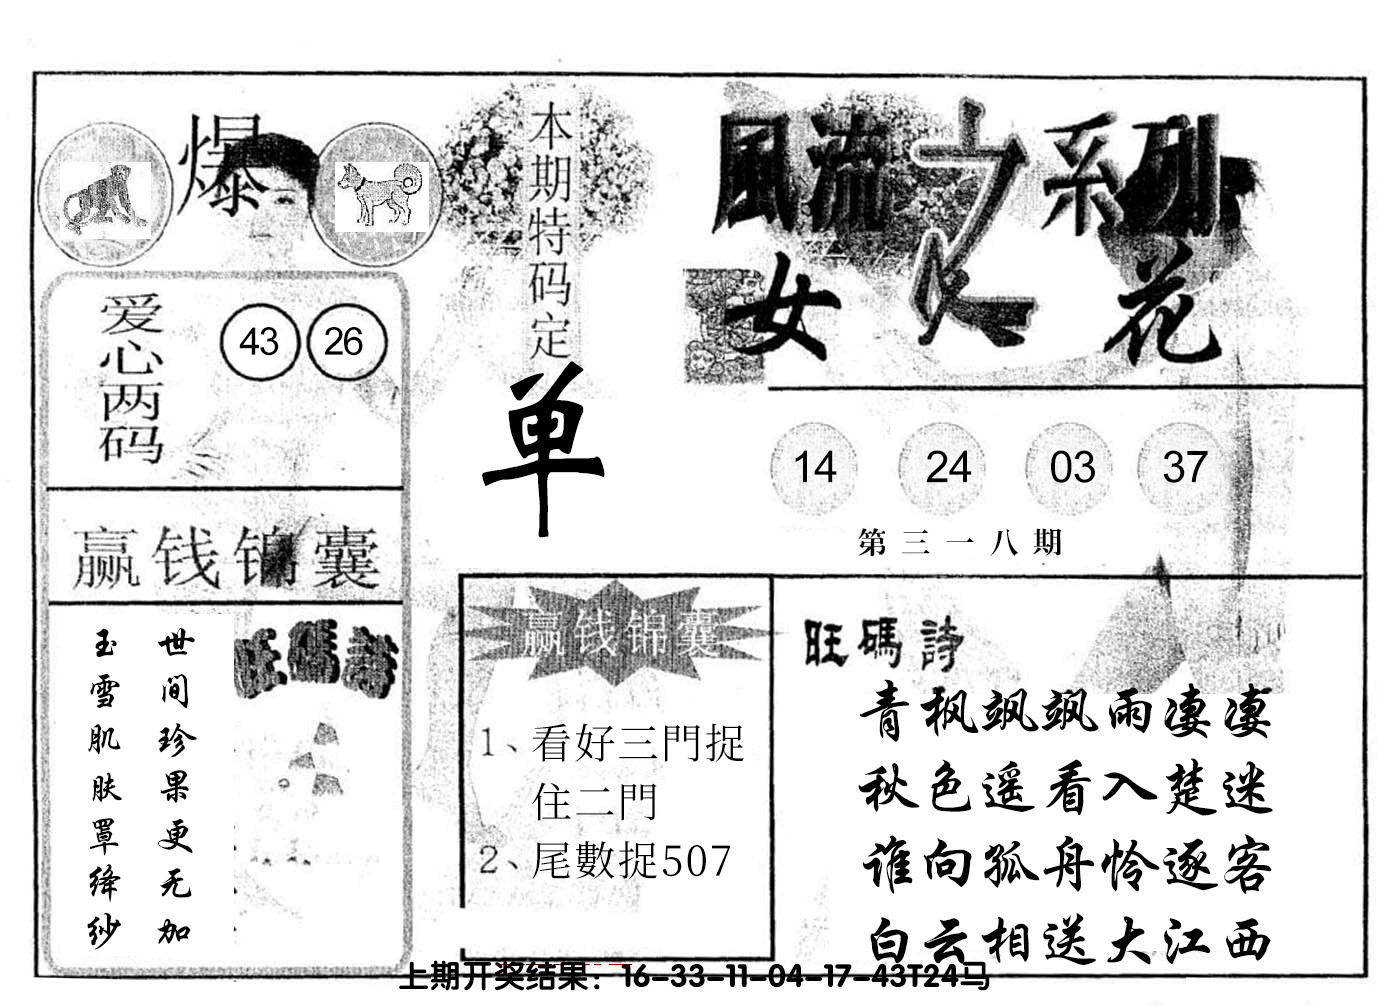 爆
本期特码定
单
風流之系列
女人花
爱心两码
43 26
14 24 03 37
第三一八期
赢钱锦囊
世间珍果更无加
玉雪肌肤罩绛纱
旺碼詩
赢钱锦囊
1、看好三門捉
住二門
2、尾數捉507
旺碼詩
青枫飒飒雨凄凄
秋色遥看入楚迷
谁向孤舟怜逐客
白云相送大江西
上期开奖结果：16-33-11-04-17-43T24马